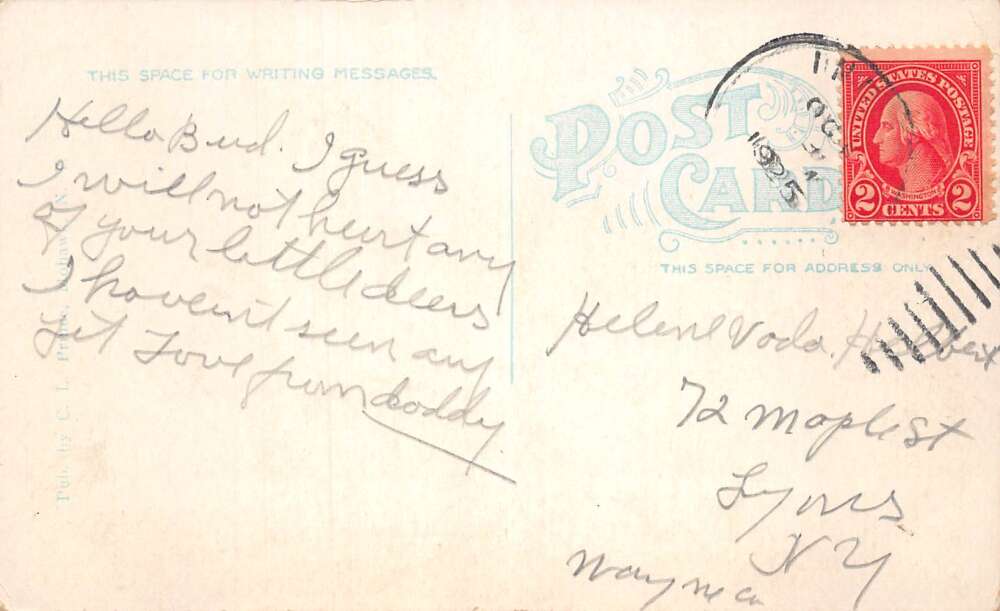 THIS SPACE FOR WRITING MESSAGES.
Hello Bud. I guess
I will not hurt any
of your little deers
I havent seen any
yet Love from daddy
Pub. by C. L. N.
POST
CARD
THIS SPACE FOR ADDRESS ONLY
OCT
1925
UNITED STATES POSTAGE
WASHINGTON
2 CENTS 2
Helene Voda
72 Maple St
Lyons
N Y
Wayne co